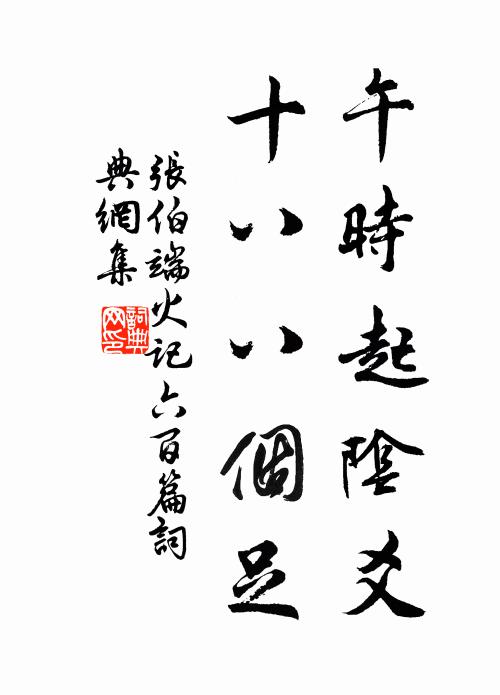 午時起陰爻
十八八個足
張伯端火記六百篇詞
典網集
詞典
网印